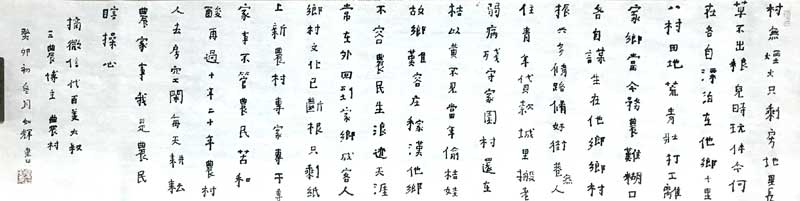 村無烟火只剩房地里長
草不出粮兒時玩伴今何
在各自漂泊在他鄉十里
八村田地荒青壯打工離
家鄉當今務農難糊口
各自謀生在他鄉鄉村
振興多修路修好街巷無人
住青年代款城里搬老
弱病殘守家園村邊在
枯以黃不見當年偷桔娃
故鄉難容庄稼漢他鄉
不容農民生浪迹天涯
常在外回到家鄉成客人
鄉村文化已斷根只剩紙
上新農村專家專干專
家事不管農民苦和
酸再過十年二十年農村
人去房空閑每天耕耘
農家事我是農民
瞎操心
摘微信代百美大叔
三農博主 農村
癸卯初冬月如輝書